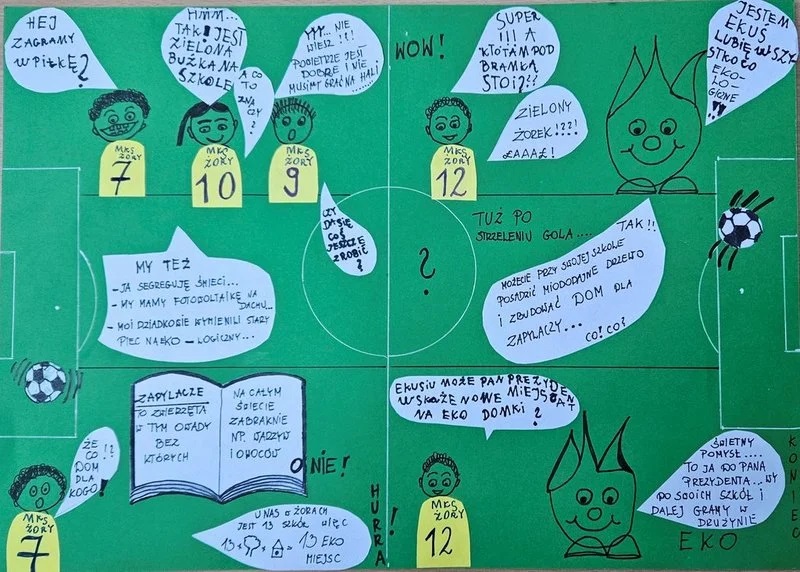 HEJ
ZAGRAMY
W PIŁKĘ?
HMM...
TAK! JEST
ZIELONA
BUŹKA NA
SZKOLE
A CO
TO
ZNA
CZY
?
YYY... NIE
WIESZ!!!
POWIETRZE JEST
DOBRE I NIE
MUSIMY GRAĆ NA HALI
MKS
ŻORY
7
MKS
ŻORY
10
MKS
ŻORY
9
WOW!
SUPER
!!! A
KTO TAM POD
BRAMKĄ
STOI??
ZIELONY
ŻOREK!??!
ŁAAAŁ!
MKS
ŻORY
12
JESTEM
EKUŚ
LUBIĘ WSZY
STKO CO
EKO-
LO-
GICZNE
!!
MY TEŻ
- JA SEGREGUJĘ ŚMIECI...
- MY MAMY FOTOWOLTAIKĘ NA
DACHU...
- MOI DZIADKOWIE WYMIENILI STARY
PIEC NA EKO - LOGICZNY...
CZY
DA SIĘ
COŚ
JESZCZE
ZROBIĆ
?
?
TUŻ PO
STRZELENIU GOLA....
TAK!!
MOŻECIE PRZY SWOJEJ SZKOLE
POSADZIĆ MIODODAJNE DRZEWO
I ZBUDOWAĆ DOM DLA
ZAPYLACZY...
CO? CO?
ŻE
CO!?
DOM
DLA
KOGO?
MKS
ŻORY
7
ZAPYLACZE
TO ZWIERZĘTA
W TYM OWADY
BEZ
KTÓRYCH
NA CAŁYM
ŚWIECIE
ZABRAKNIE
NP. WARZYW
I OWOCÓW
O NIE!
U NAS W ŻORACH
JEST 13 SZKÓŁ WIĘC
13 x + = 13 EKO
MIEJSC
HURRA!
EKUSIU MOŻE PAN PREZYDENT
WSKAŻE NOWE MIEJSCA
NA EKO DOMKI?
MKS
ŻORY
12
ŚWIETNY
POMYSŁ....
TO JA DO PANA
PREZYDENTA...WY
DO SWOICH SZKÓŁ I
DALEJ GRAMY W
DRUŻYNIE
EKO
KONIEC